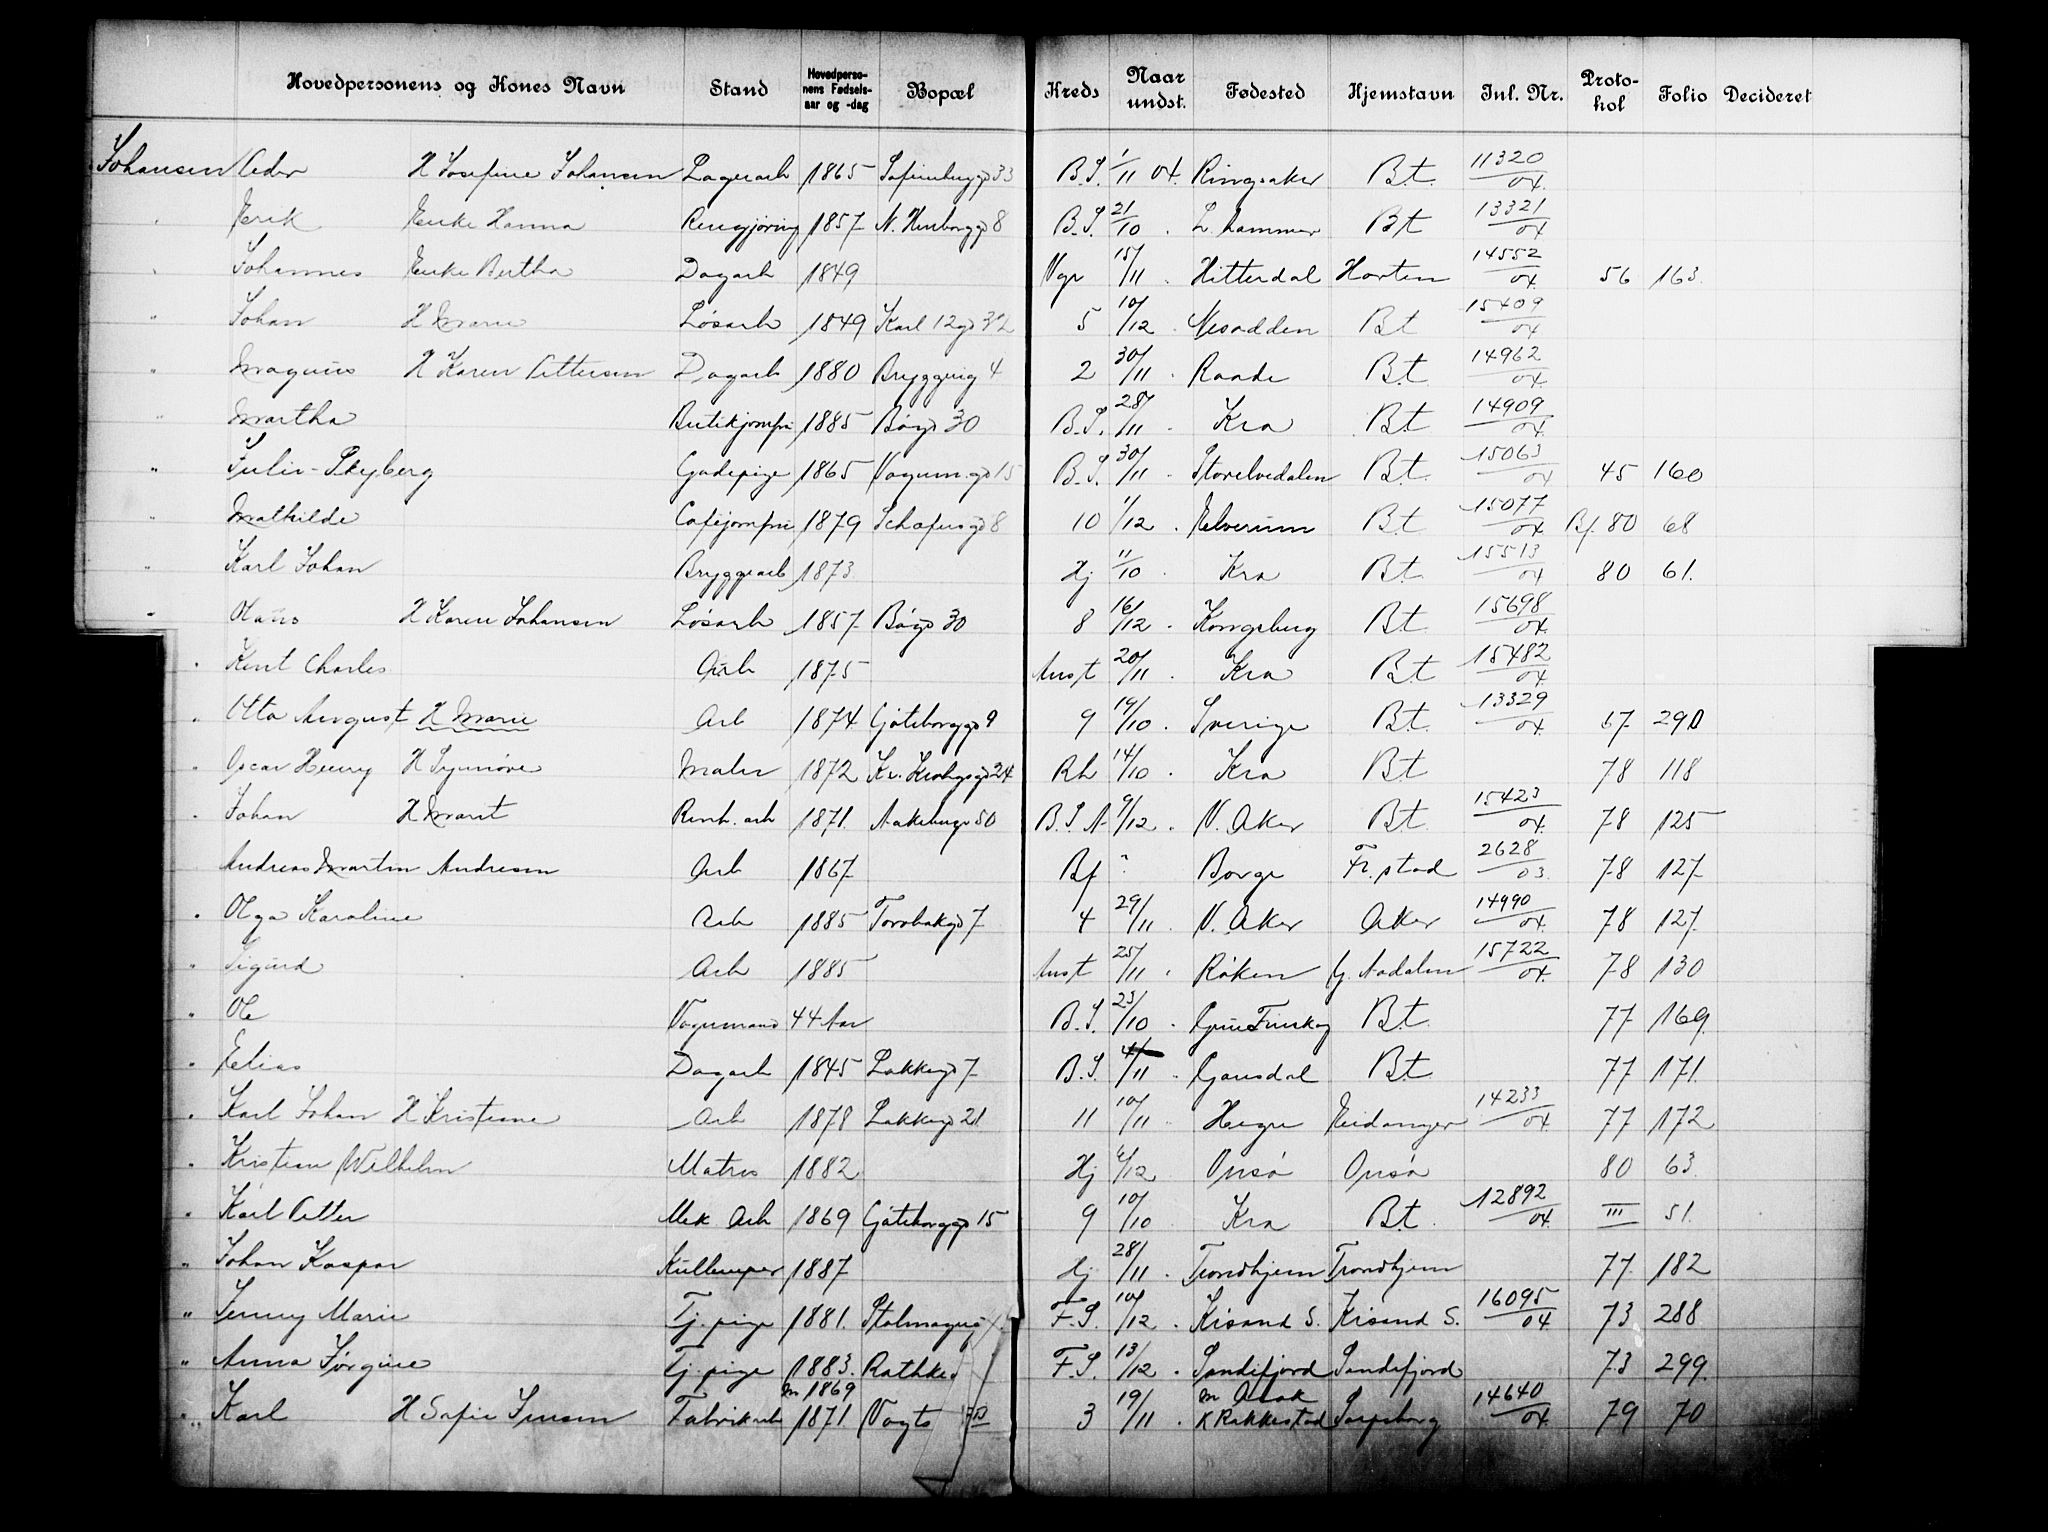 Hovedpersonens og Kones Navn Stand Hovedperso-nens Fødsels-aar og -dag Bopæl Kreds Naar undst. Fødested Hjemstavn Inl. Nr. Proto-kol Folio Decideret
Johansen Peder H Josefine Johansen Lagerarb 1865 Sofienbergg 33 B.S. 1/11 04. Ringsaker B.t. 11320/04.
" Erik Enke Hanna Rengjøring 1857 8 B.S. 21/10 . L.hammer Bt 13321/04
" Johannes Enke Bertha Dagarb 1849 Vgr 15/11 . Hitterdal Horten 14552/04. 56 163.
" Johan H Marie Løsarb 1849 Karl 12 gd 32 5 10/12 . Nesodden Bt 15409/04
" Magnus H Karen Pettersen Dagarb 1880 Bryggerig 4 2 30/11 . Raade B.t 14962/04.
" Martha Butikjomfru 1885 30 B.S. 28/11 . Kra B.t. 14909/04.
" Julie Skyberg Gadepige 1865 Vognm.gd 15 B.S. 30/11 . Storelvedalen B.t. 15063/04 45 160
" Mathilde Cafejomfru 1879 Schafers gd 8 10 1/12 . Elverum B.t. 15077/04. Bf. 80 68
" Karl Johan Bryggearb 1873. Hj 11/10 . Kra B.t. 15513/04 80 61.
" Hans H Karen Johansen Løsarb 1857 30 8 16/12 . Kongsberg Bt 15698/04.
" Kent Charles Arb 1875 Anst 20/11 . Kra Bt 15482/04.
" Otto August H Marie Arb 1874. Göteborggd 9 9 19/10 . Sverige B.t. 13329/04. 67 290
" Oscar Henry H Synnöve Maler 1872 Kr. Krohgsgd 24 Rh 14/10 . Kra Bt 78 118
" Johan H Marit Renh. arb 1871. Aakebergv 50 B.S.A. 9/12 . V. Aker B.t. 15423/04. 78 125
Andreas Martin Andresen Arb 1867 Bf " Borge Fr.stad 2628/03. 78 127
" Olga Karoline Arb 1885 Torvbakgd 7 4 29/11 . V. Aker Aker 14990/04. 78 127.
" Sigurd Arb 1885 Anst 25/11 . Røken Aadalen 15722/04. 78 130
" Ole Vognmand 44 Aar B.S. 23/10 . Grue Finskog B.t. 77 169.
" Elias Dagarb 1845 Lakkegd 7 B.S. 4/11 . Gausdal B.t. 77 171.
" Karl Johan H Kristiane Arb 1878 Lakkegd 21 11 10/11 . Hegre Eidanger 14233/04. 77 172
" Kristian Wilhelm Matros 1882 Hj 6/12 . Onsø Onsø 80 63.
" Karl Petter Mek Arb 1869 Göteborggd 15 9 10/10 . Kra B.t. 12892/04. III 51.
" Johan Kaspar Kullemper 1887 Hj 28/11 . Trondhjem Trondhjem 77. 182
" Jenny Marie Tj. pige 1881. F.S. 10/12 . Krsand S. Krsand S. 16095/04. 73 288
" Anna Jørgine Tj. pige 1883. Rathkes F.S. 13/12 . Sandefjord Sandefjord 73 299.
" Karl H Sofie Jensen Fabrikarb m 1869 1871. Vogts 3 19/11 . m Asak K Rakkestad Sarpsborg 14640/04. 79 70